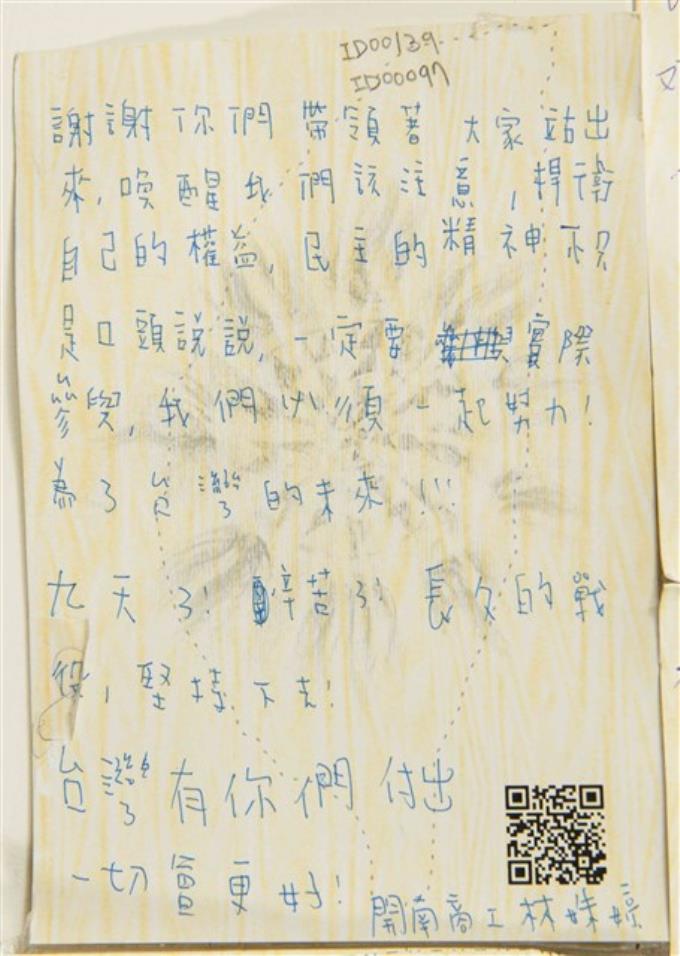 ID00139
ID00097
謝謝你們帶領著大家站出
來,喚醒我們該注意,捍衛
自己的權益,民主的精神不只
是口頭說說,一定要實際
參與,我們必須一起努力!
為了台灣的未來!!!
九天了!辛苦了!長久的戰
役,堅持下去!
台灣有你們付出
一切會更好!
開南商工 林姝婷